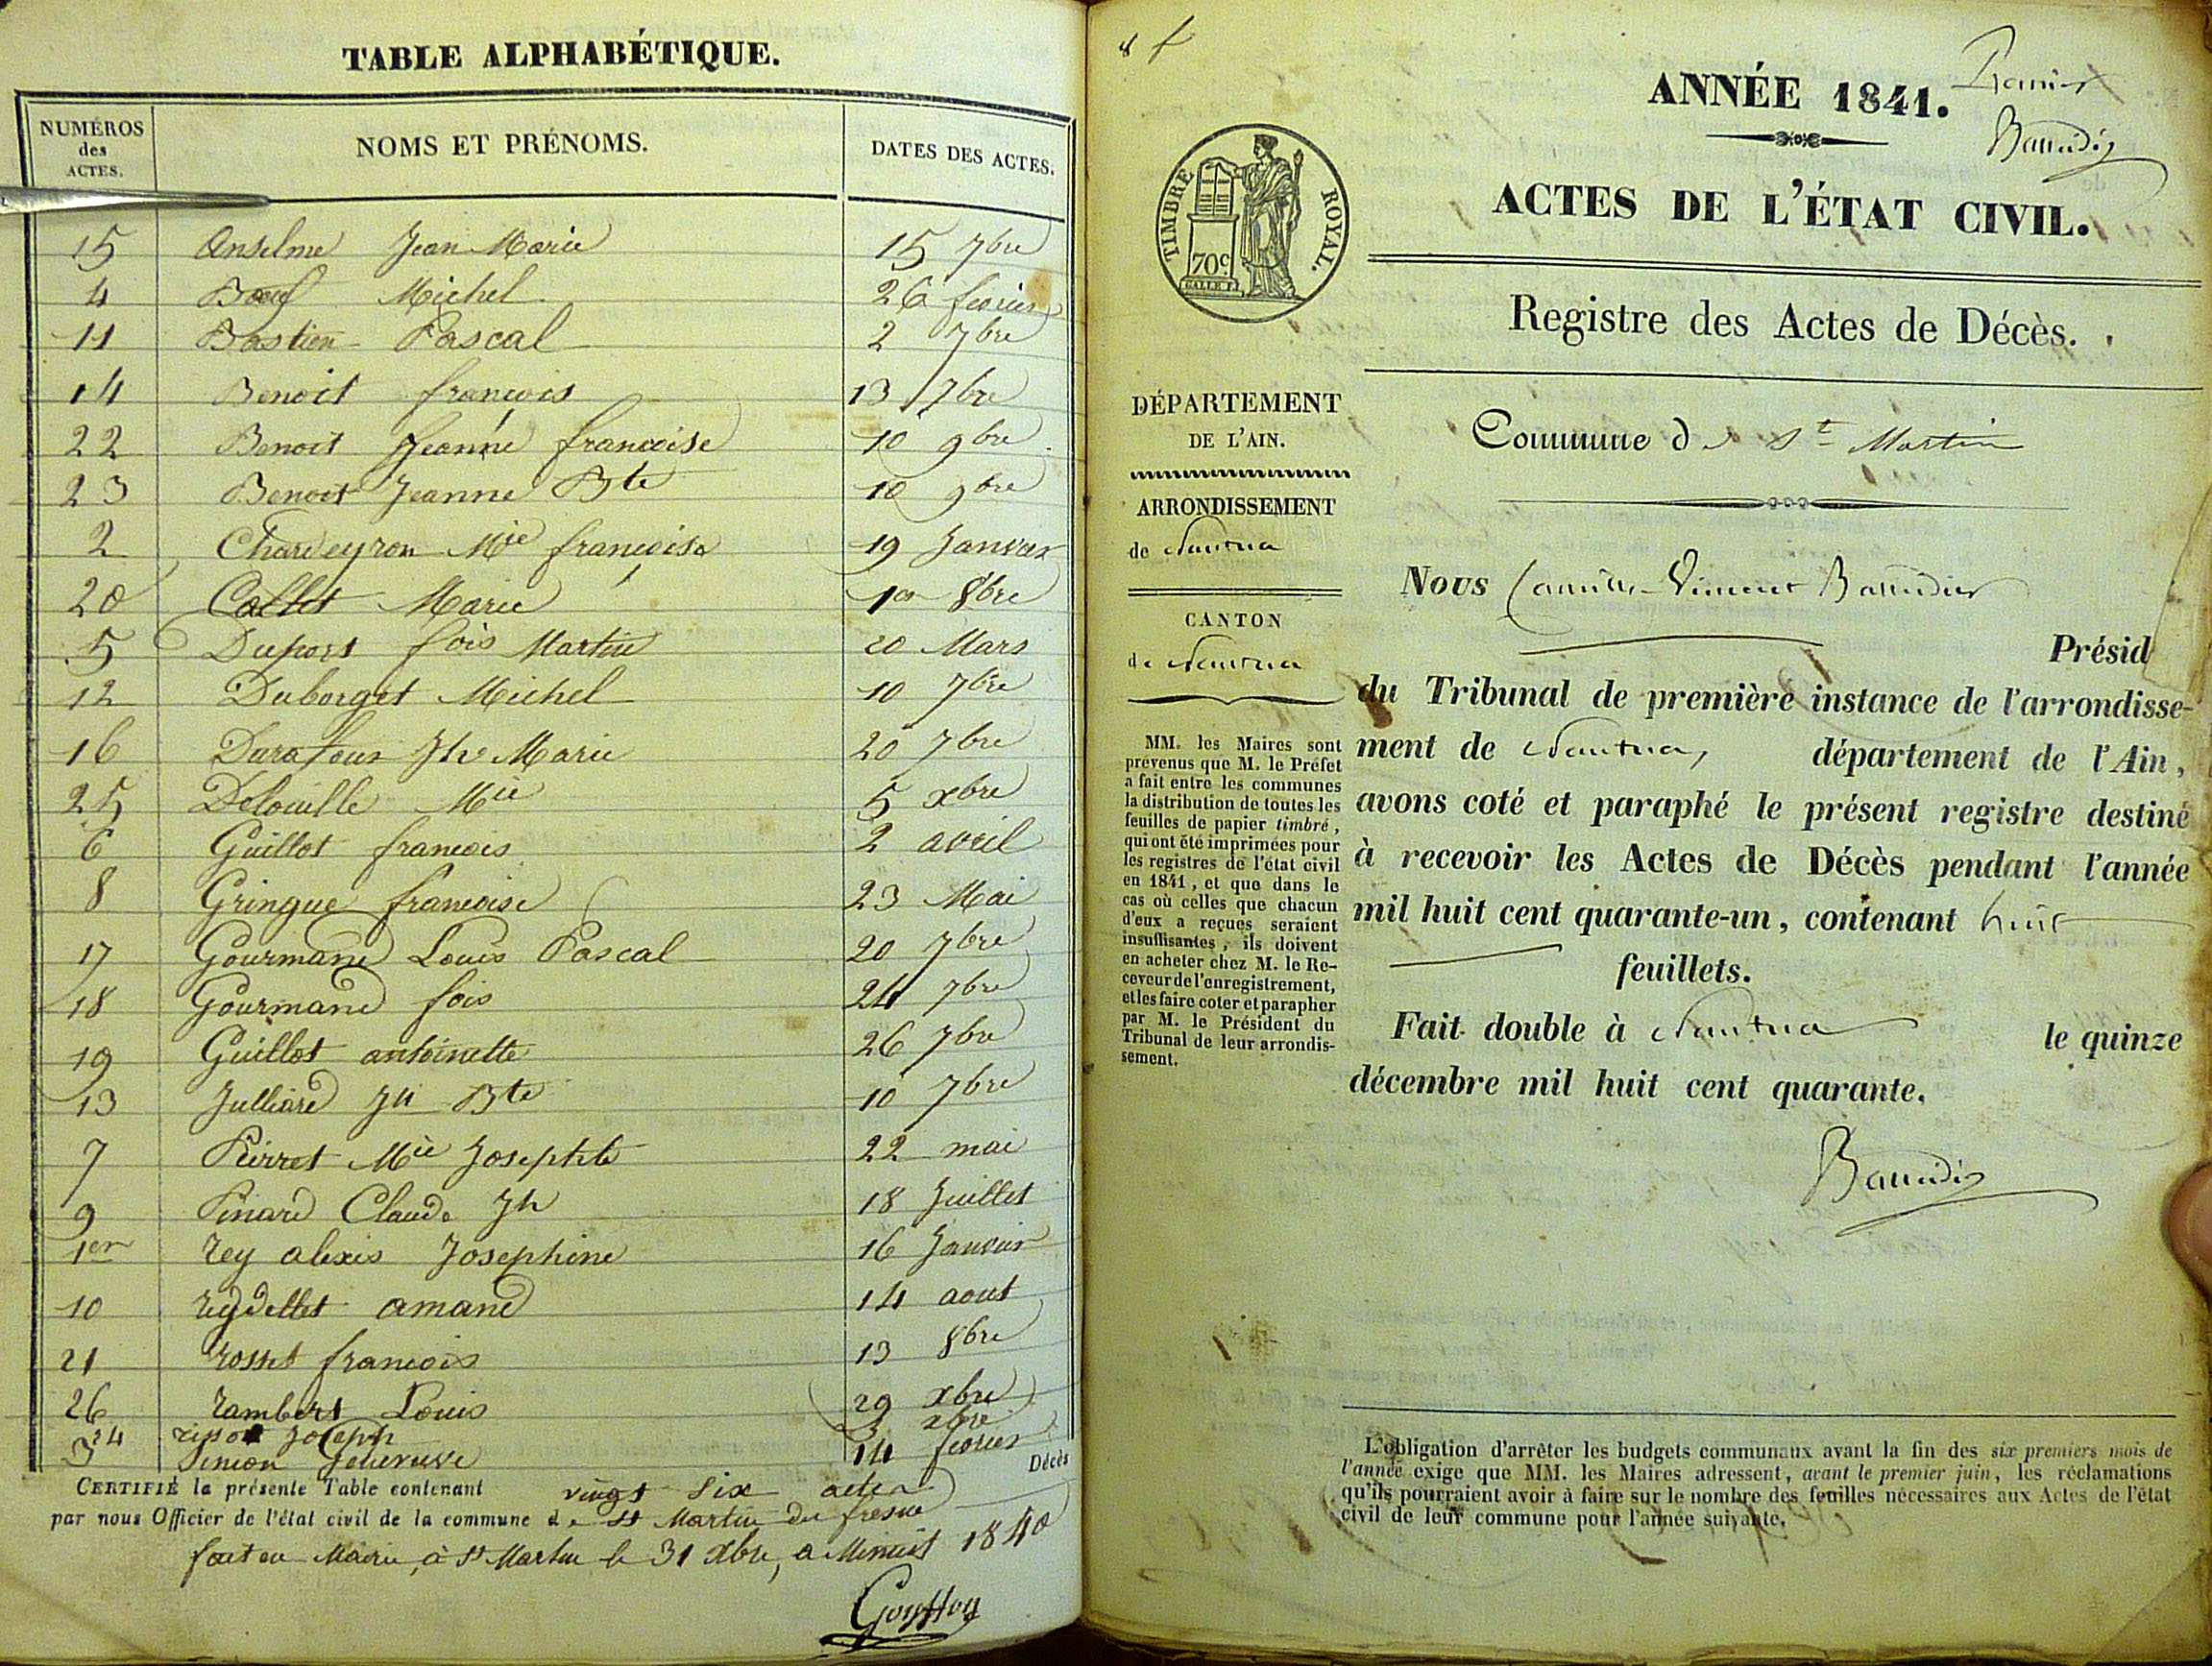 TABLE ALPHABÉTIQUE.
NUMÉROS des ACTES. NOMS ET PRÉNOMS. DATES DES ACTES.
15 Anselme Jean Marie 15 7bre
4 Bœuf Michel 26 fevrier
11 Bastien Pascal 2 7bre
14 Benoit francois 13 7bre
22 Benoit Jeanne francoise 10 9bre
23 Benoit Jeanne Bte 10 9bre
2 Chardeyron Mie francoise 19 Janvier
20 Callet Marie 1er 8bre
5 Duport fois Martin 20 Mars
12 Duborget Michel 10 7bre
16 Durafour Jh Marie 20 7bre
25 Delouille Mie 5 xbre
6 Guillot francois 2 avril
8 Gringue francoise 23 Mai
17 Gourmand Louis Pascal 20 7bre
18 Gourmand fois 24 7bre
19 Guillot antoinette 26 7bre
13 Julliard Jh Bte 10 7bre
7 Pierret Mie Josephte 22 mai
9 Pinard Claude Jh 18 Juillet
1er rey alexis Josephine 16 Janvier
10 reydellet amand 14 aout
21 rosset francois 13 8bre
26 rambert Louis 29 xbre
24 Joseph xbre
3 Simeon Genevieve 14 fevrier
Décès
CERTIFIÉ la présente Table contenant vingt six actes
par nous Officier de l'état civil de la commune de St Martin du fresne
fait en Mairie, à St Martin le 31 Xbre, a Minuit 1840
Gouffon
ANNÉE 1841.
Premier
ACTES DE L'ÉTAT CIVIL.
TIMBRE ROYAL.
70c
Registre des Actes de Décès.
DÉPARTEMENT
DE L'AIN.
ARRONDISSEMENT
de Nantua
CANTON
de Nantua
MM. les Maires sont
prévenus que M. le Préfet
a fait entre les communes
la distribution de toutes les
feuilles de papier timbré,
qui ont été imprimées pour
les registres de l'état civil
en 1841, et que dans le
cas où celles que chacun
d'eux a reçues seraient
insuffisantes, ils doivent
en acheter chez M. le Re-
ceveur de l'enregistrement,
et les faire coter et parapher
par M. le Président du
Tribunal de leur arrondis-
sement.
Commune de St Martin
Nous Camille-Vincent
Présid
du Tribunal de première instance de l'arrondisse-
ment de Nantua, département de l'Ain,
avons coté et paraphé le présent registre destiné
à recevoir les Actes de Décès pendant l'année
mil huit cent quarante-un, contenant huit
feuillets.
Fait double à Nantua le quinze
décembre mil huit cent quarante.
L'obligation d'arrêter les budgets communaux avant la fin des six premiers mois de
l'année exige que MM. les Maires adressent, avant le premier juin, les réclamations
qu'ils pourraient avoir à faire sur le nombre des feuilles nécessaires aux Actes de l'état
civil de leur commune pour l'année suivante.